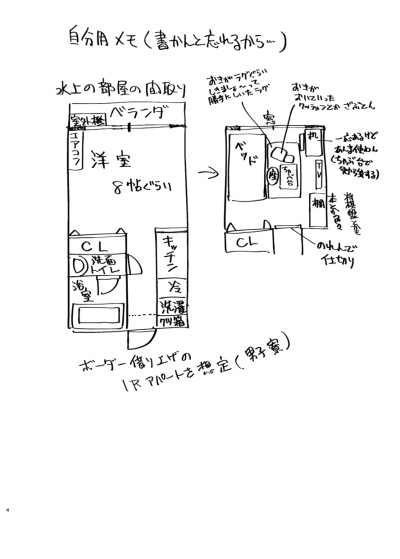 自分用メモ(書かんと忘れるから…)
水上の部屋の間取り
ベランダ
室外機
エアコン
洋室
8帖ぐらい
CL
洗面
トイレ
浴室
キッチン
冷
洗濯
クツ箱
ボーダー借り上げの
1Rアパートを想定(男子寮)
おきがラグぐらい
しきましょーって
勝手にしいたラグ
おきが
おいていった
クッションとか ざぶとん
窓
ベッド
机
座
ちゃぶ台
TV
棚
CL
一応あるけど
あんま使わん
(ちゃぶ台で
のれんで
仕切り
将棋盤など
4